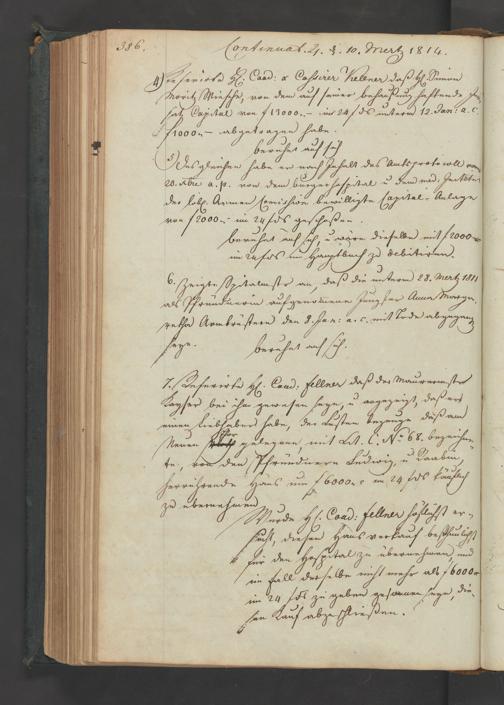 386.
Continuat. 21. d. 10. Mertz 1814.
4) Referirte H. Coad: & Cassirer Kellner daß H. Simon
Moritz von dem auf seiner Behausung haftende In-
satz Capital von f 13000.– im 24 f. unterm 12. Jan: a. c.
f 1000.– abgetragen habe.
beruhet auf sich
5.) Desgleichen habe er nach Inhalt des Amtsprotocoll vom
20. a. p. von dem Bürgerhospital u dem med: Institut
der löbl. Armen Comission bewilligte Capital-Anlage
von f 2000.– im 24 f. geschossen.
beruhet auf sich, u wäre dieselben mit f 2000.–
im 24 f. im Hauptbuch zu debitiren.
6. Zeigte Spitalmstr an, daß die unterm 28. Mertz 1811
als Pfründnerin aufgenommene Jungfer Anna Marga-
retha Armbrüstern den 8. Jan: a. c. mit Tode abgegangen
seye.
beruhet auf sich.
7. Referirte H. Coad. Fellner daß der Maurermstr
Kayser bei ihm gewesen seye, u angezeigt, daß er
einen Liebhaber habe, der Lusten bezeuge, das am
Neuen gelegene, mit Lit. C. No 68. bezeichne-
te, von den Pfründnern Ludwig, u
herrührende Haus um f 6000.– im 24 f. käuflich
zu übernehmen
Wurde H. Coad: Fellner höflichst er-
sucht, diesen Hausverkauf
für den Hospital zu übernehmen, und
im fall derselbe nicht mehr als f 6000.–
im 24 f. zu geben gesonnen seye, die-
sen Kauf abzuschließen.